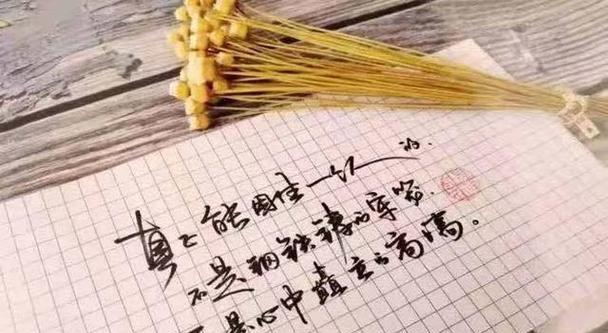 真正能困住一个人的
不是钢铁铸的牢笼
是心中矗立的高墙。